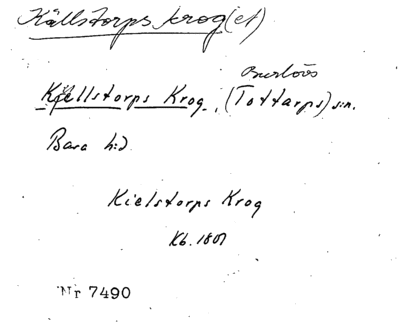 Källstorps krog(et)
Burlövs
Kjellstorps Krog, (Tottarps) sn.
Bara hd
Kielstorps Krog
Kb. 1801
Nr 7490